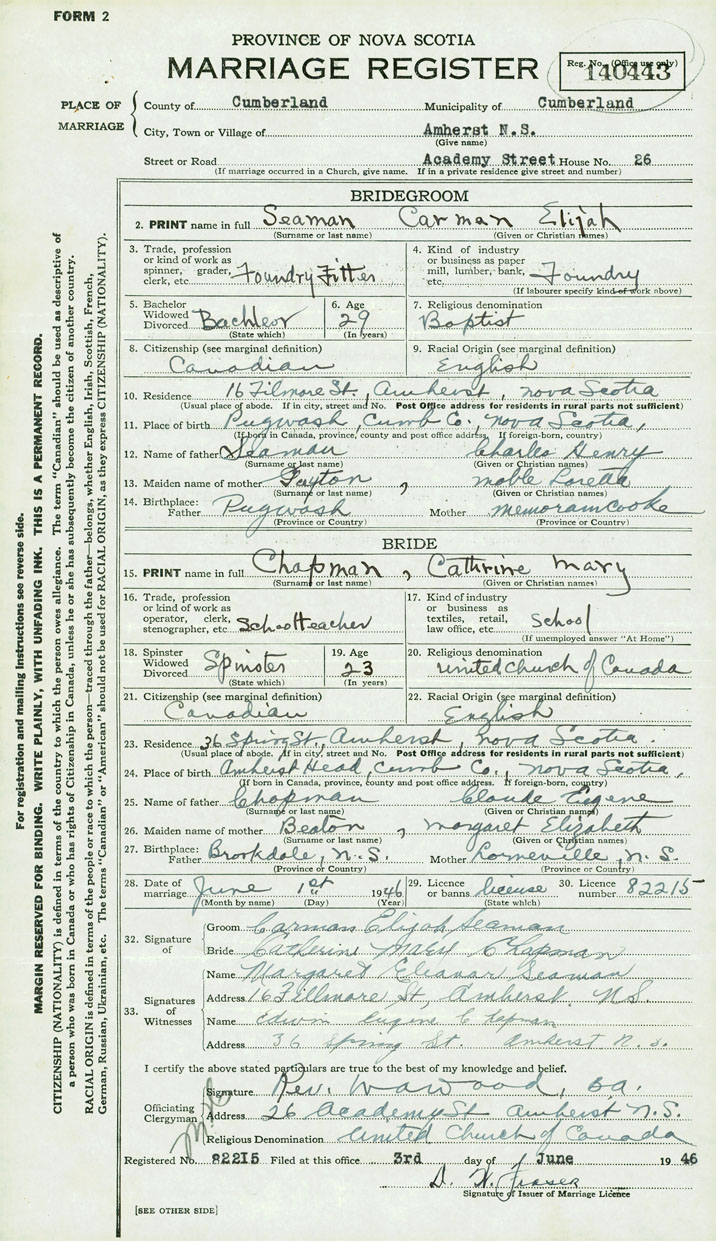 FORM 2
PROVINCE OF NOVA SCOTIA
MARRIAGE REGISTER
Reg. No. (Office use only)
140443
PLACE OF MARRIAGE
County of Cumberland Municipality of Cumberland
City, Town or Village of Amherst N.S.
(Give name)
Street or Road Academy Street House No. 26
(If marriage occurred in a Church, give name. If in a private residence give street and number)
BRIDEGROOM
2. PRINT name in full Seaman Carman Elijah
(Surname or last name) (Given or Christian names)
3. Trade, profession or kind of work as spinner, grader, clerk, etc. Foundry Fitter
4. Kind of industry or business as paper mill, lumber, bank, etc. Foundry
(If labourer specify kind of work above)
5. Bachelor Widowed Divorced Bachleor (State which)
6. Age 29 (In years)
7. Religious denomination Baptist
8. Citizenship (see marginal definition) Canadian
9. Racial Origin (see marginal definition) English
10. Residence 16 Filmore St., Amherst, nova Scotia
(Usual place of abode. If in city, street and No. Post Office address for residents in rural parts not sufficient)
11. Place of birth Pugwash, Cumb Co., nova Scotia,
(If born in Canada, province, county and post office address. If foreign-born, country)
12. Name of father Seaman Charles Henry
(Surname or last name) (Given or Christian names)
13. Maiden name of mother , moble Loretta
(Surname or last name) (Given or Christian names)
14. Birthplace: Father Pugwash Mother memoramcooke
(Province or Country) (Province or Country)
BRIDE
15. PRINT name in full Chapman, Cathrine Mary
(Surname or last name) (Given or Christian names)
16. Trade, profession or kind of work as operator, clerk, stenographer, etc. Schoolteacher
17. Kind of industry or business as textiles, retail, law office, etc. School
(If unemployed answer "At Home")
18. Spinster Widowed Divorced Spinster (State which)
19. Age 23 (In years)
20. Religious denomination United Church of Canada
21. Citizenship (see marginal definition) Canadian
22. Racial Origin (see marginal definition) English
23. Residence 36 Spring St., Amherst, nova Scotia.
(Usual place of abode. If in city, street and No. Post Office address for residents in rural parts not sufficient)
24. Place of birth Amherst Head, Cumb Co., nova Scotia,
(If born in Canada, province, county and post office address. If foreign-born, country)
25. Name of father Chapman Claude Eugene
(Surname or last name) (Given or Christian names)
26. Maiden name of mother Beaton, Margaret Elizabeth
(Surname or last name) (Given or Christian names)
27. Birthplace: Father Brookdale, N.S. Mother Lorneville, N.S.
(Province or Country) (Province or Country)
28. Date of marriage June 1st 1946
(Month by name) (Day) (Year)
29. Licence or banns license (State which)
30. Licence number 82215
32. Signature of
Groom Carman Elijah Seaman
Bride Catherine Mary Chapman
33. Signatures of Witnesses
Name Margaret Eleanor Seaman
Address 16 Fillmore St, Amherst, N.S.
Name Edwin Eugene Chapman
Address 36 Spring St. Amherst N.S.
I certify the above stated particulars are true to the best of my knowledge and belief.
Officiating Clergyman
Signature Rev. Wood, B.A.
Address 26 Academy St Amherst N.S.
Religious Denomination United Church of Canada
Registered No. 82215 Filed at this office 3rd day of June 1946
D. W. Fraser
Signature of Issuer of Marriage Licence
[SEE OTHER SIDE]
For registration and mailing instructions see reverse side.
MARGIN RESERVED FOR BINDING. WRITE PLAINLY, WITH UNFADING INK. THIS IS A PERMANENT RECORD.
CITIZENSHIP (NATIONALITY) is defined in terms of the country to which the person owes allegiance. The term "Canadian" should be used as descriptive of
a person who was born in Canada or who has rights of Citizenship in Canada, unless he or she has subsequently become the citizen of another country.
RACIAL ORIGIN is defined in terms of the people or race to which the person—traced through the father—belongs, whether English, Irish, Scottish, French,
German, Russian, Ukrainian, etc. The terms "Canadian" or "American" should not be used for RACIAL ORIGIN, as they express CITIZENSHIP (NATIONALITY).